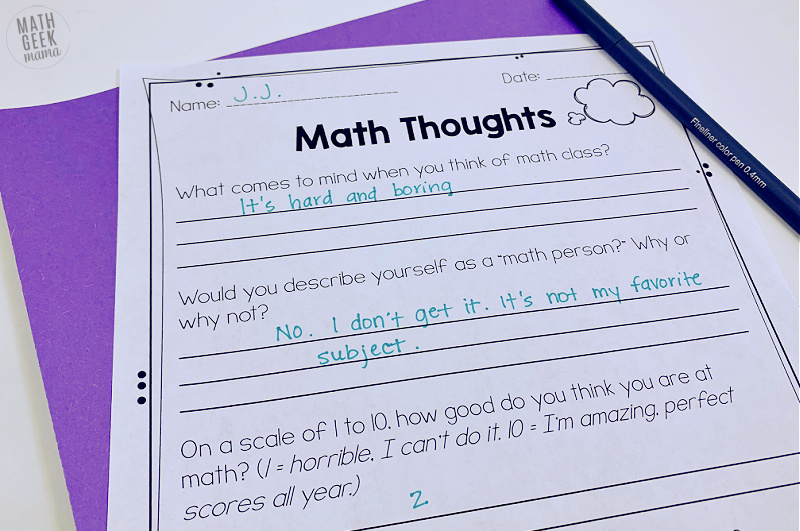 MATH
GEEK
mama
Name: J.J.
Date:
Math Thoughts
What comes to mind when you think of math class?
It's hard and boring
Would you describe yourself as a "math person?" Why or
why not?
No. I don't get it. It's not my favorite
subject.
On a scale of 1 to 10, how good do you think you are at
math? (1 = horrible, I can't do it. 10 = I'm amazing, perfect
scores all year.)
2
Fineliner color pen 0.4mm